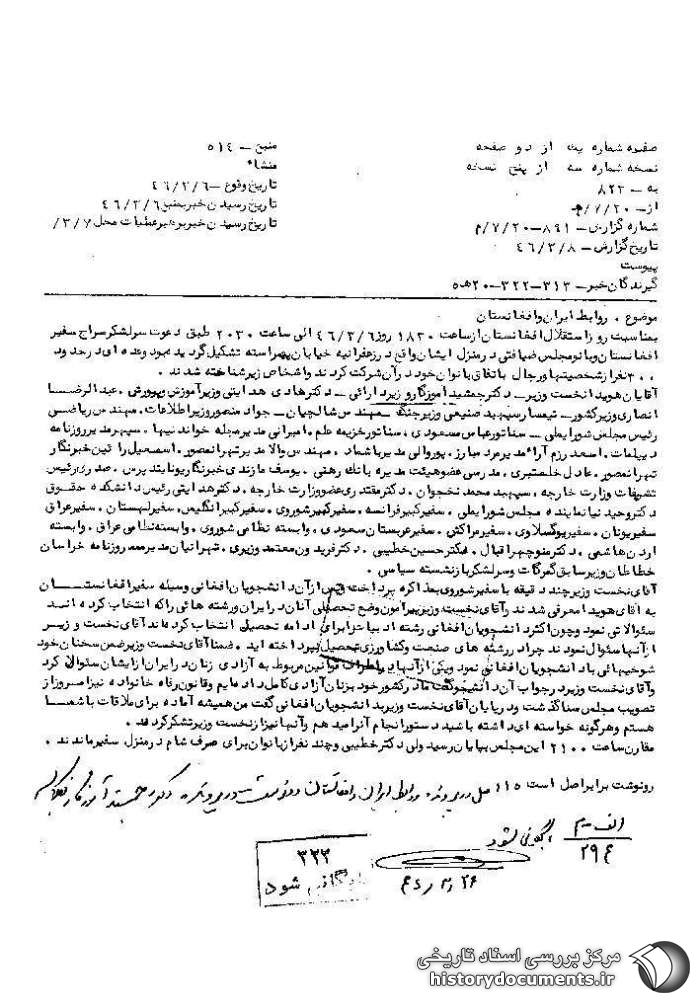 صفحه شماره یک از دو صفحه
نسخه شماره سه از پنج نسخه
به – ۸۲۲
از – ۲۰/۷/م
شماره گزارش – ۸۴۱–۷/۲۰/م
تاریخ گزارش – ۴۶/۳/۸
پیوست
گیرندگان خبر – ۳۱۳–۳۲۲–۲۰ه۵
منبع – ۵۱۴
منشاء
تاریخ وقوع – ۴۶/۳/۶
تاریخ رسیدن خبر بمنبع ۴۶/۳/۶
تاریخ رسیدن خبر برهبر عملیات محل ۳/۷/
موضوع . روابط ایران و افغانستان
بمناسبت روز استقلال افغانستان از ساعت ۱۸۳۰ روز ۴۶/۳/۶ الی ساعت ۲۰۳۰ طبق دعوت سرلشکر سراج سفیر
افغانستان و بانو مجلس ضیافتی در منزل ایشان واقع در زعفرانیه خیابان پهراسته تشکیل گردید بود وعده ای در حدود
۳۰۰ نفر از شخصیتها و رجال باتفاق بانوان خود در آن شرکت کردند و اشخاص زیر شناخته شدند .
آقایان هویدا نخست وزیر – دکتر جمشید آموزگار وزیر دارائی – دکتر هادی هدایتی وزیر آموزش و پرورش . عبدالرضا
انصاری وزیر کشور – تیمسار سپهبد صنیعی وزیر جنگ – مهندس شالچیان – جواد منصور وزیر اطلاعات . مهندس ریاضی
رئیس مجلس شورایملی – سناتور عباس مسعودی ، سناتور خزیمه علم . امیرانی مدیر مجله خواندنیها . سپهر مدیر روزنامه
دیپلمات . اسعد رزم آراء مدیر مرد مبارز . پوروالی مدیر بامشاد . مهندس والا مدیر تهرانمصور . اسمعیل رائین خبرنگار
تهرانمصور . عادل خلعتبری . مدرسی عضو هیئت مدیره بانک رهنی . یوسف مازندی خبرنگار یونایتد پرس . صدری رئیس
تشریفات وزارت خارجه . سپهبد محمد نخجوان . دکتر مقتدری عضو وزارت خارجه . دکتر هدایتی رئیس دانشکده حقوق
دکتر وحید نیا نماینده مجلس شورایملی . سفیر کبیر فرانسه . سفیر کبیر شوروی . سفیر کبیر انگلیس . سفیر لهستان . سفیر عراق
سفیر یونان . سفیر یوگسلاوی . سفیر مراکش . سفیر عربستان سعودی . وابسته نظامی شوروی . وابسته نظامی عراق . وابسته
اردن هاشمی . دکتر منوچهر اقبال . دکتر حسین خطیبی . دکتر فریدون معتمد وزیری . تهرانیان مدیر روزنامه خراسان
خطاطان وزیر سابق گمرکات و سرلشکر بازنشسته سیاسی .
آقای نخست وزیر چند دقیقه با سفیر شوروی بمذاکره پرداخت و پس از آن دانشجویان افغانی وسیله سفیر افغانستان
به آقای هویدا معرفی شدند و آقای نخست وزیر پیرامون وضع تحصیلی آنان در ایران و رشته هائی را که انتخاب کرده اند
سئوالاتی نمود و چون اکثر دانشجویان افغانی رشته ادبیات را برای ادامه تحصیل انتخاب کرده اند آقای نخست وزیر
از آنها سئوال نمودند چرا در رشته های صنعت و کشاورزی تحصیل نپرداخته اید . ضمنا آقای نخست وزیر ضمن سخنان خود
شوخیهائی با دانشجویان افغانی نمود و یکی از آنها در اطراف قوانین مربوط به آزادی زنان در ایران از ایشان سئوال کرد
و آقای نخست وزیر در جواب آن دانشجو گفت ما در کشور خود بزنان آزادی کامل داده ایم و قانون رفاه خانواده نیز امروز از
تصویب مجلس سنا گذشت و در پایان آقای نخست وزیر بدانشجویان افغانی گفت من همیشه آماده برای ملاقات باشما
هستم و هرگونه خواسته ای داشته باشید دستور انجام آنرا میدهم و آنها نیز از نخست وزیر تشکر کردند .
مقارن ساعت ۲۱۰۰ این مجلس بپایان رسید ولی دکتر خطیبی و چند نفر از بانوان برای صرف شام در منزل سفیر ماندند .
رونوشت برابر اصل است ۱۱۵ اصل در پرونده روابط ایران و افغانستان در پرونده دکتر جمشید آموزگار بایگانی
الف – م
۲۹۴
بایگانی شود
۴۶/۳/۲۶
۳۲۲
بایگانی شود
مرکز بررسی اسناد تاریخی
historydocuments.ir